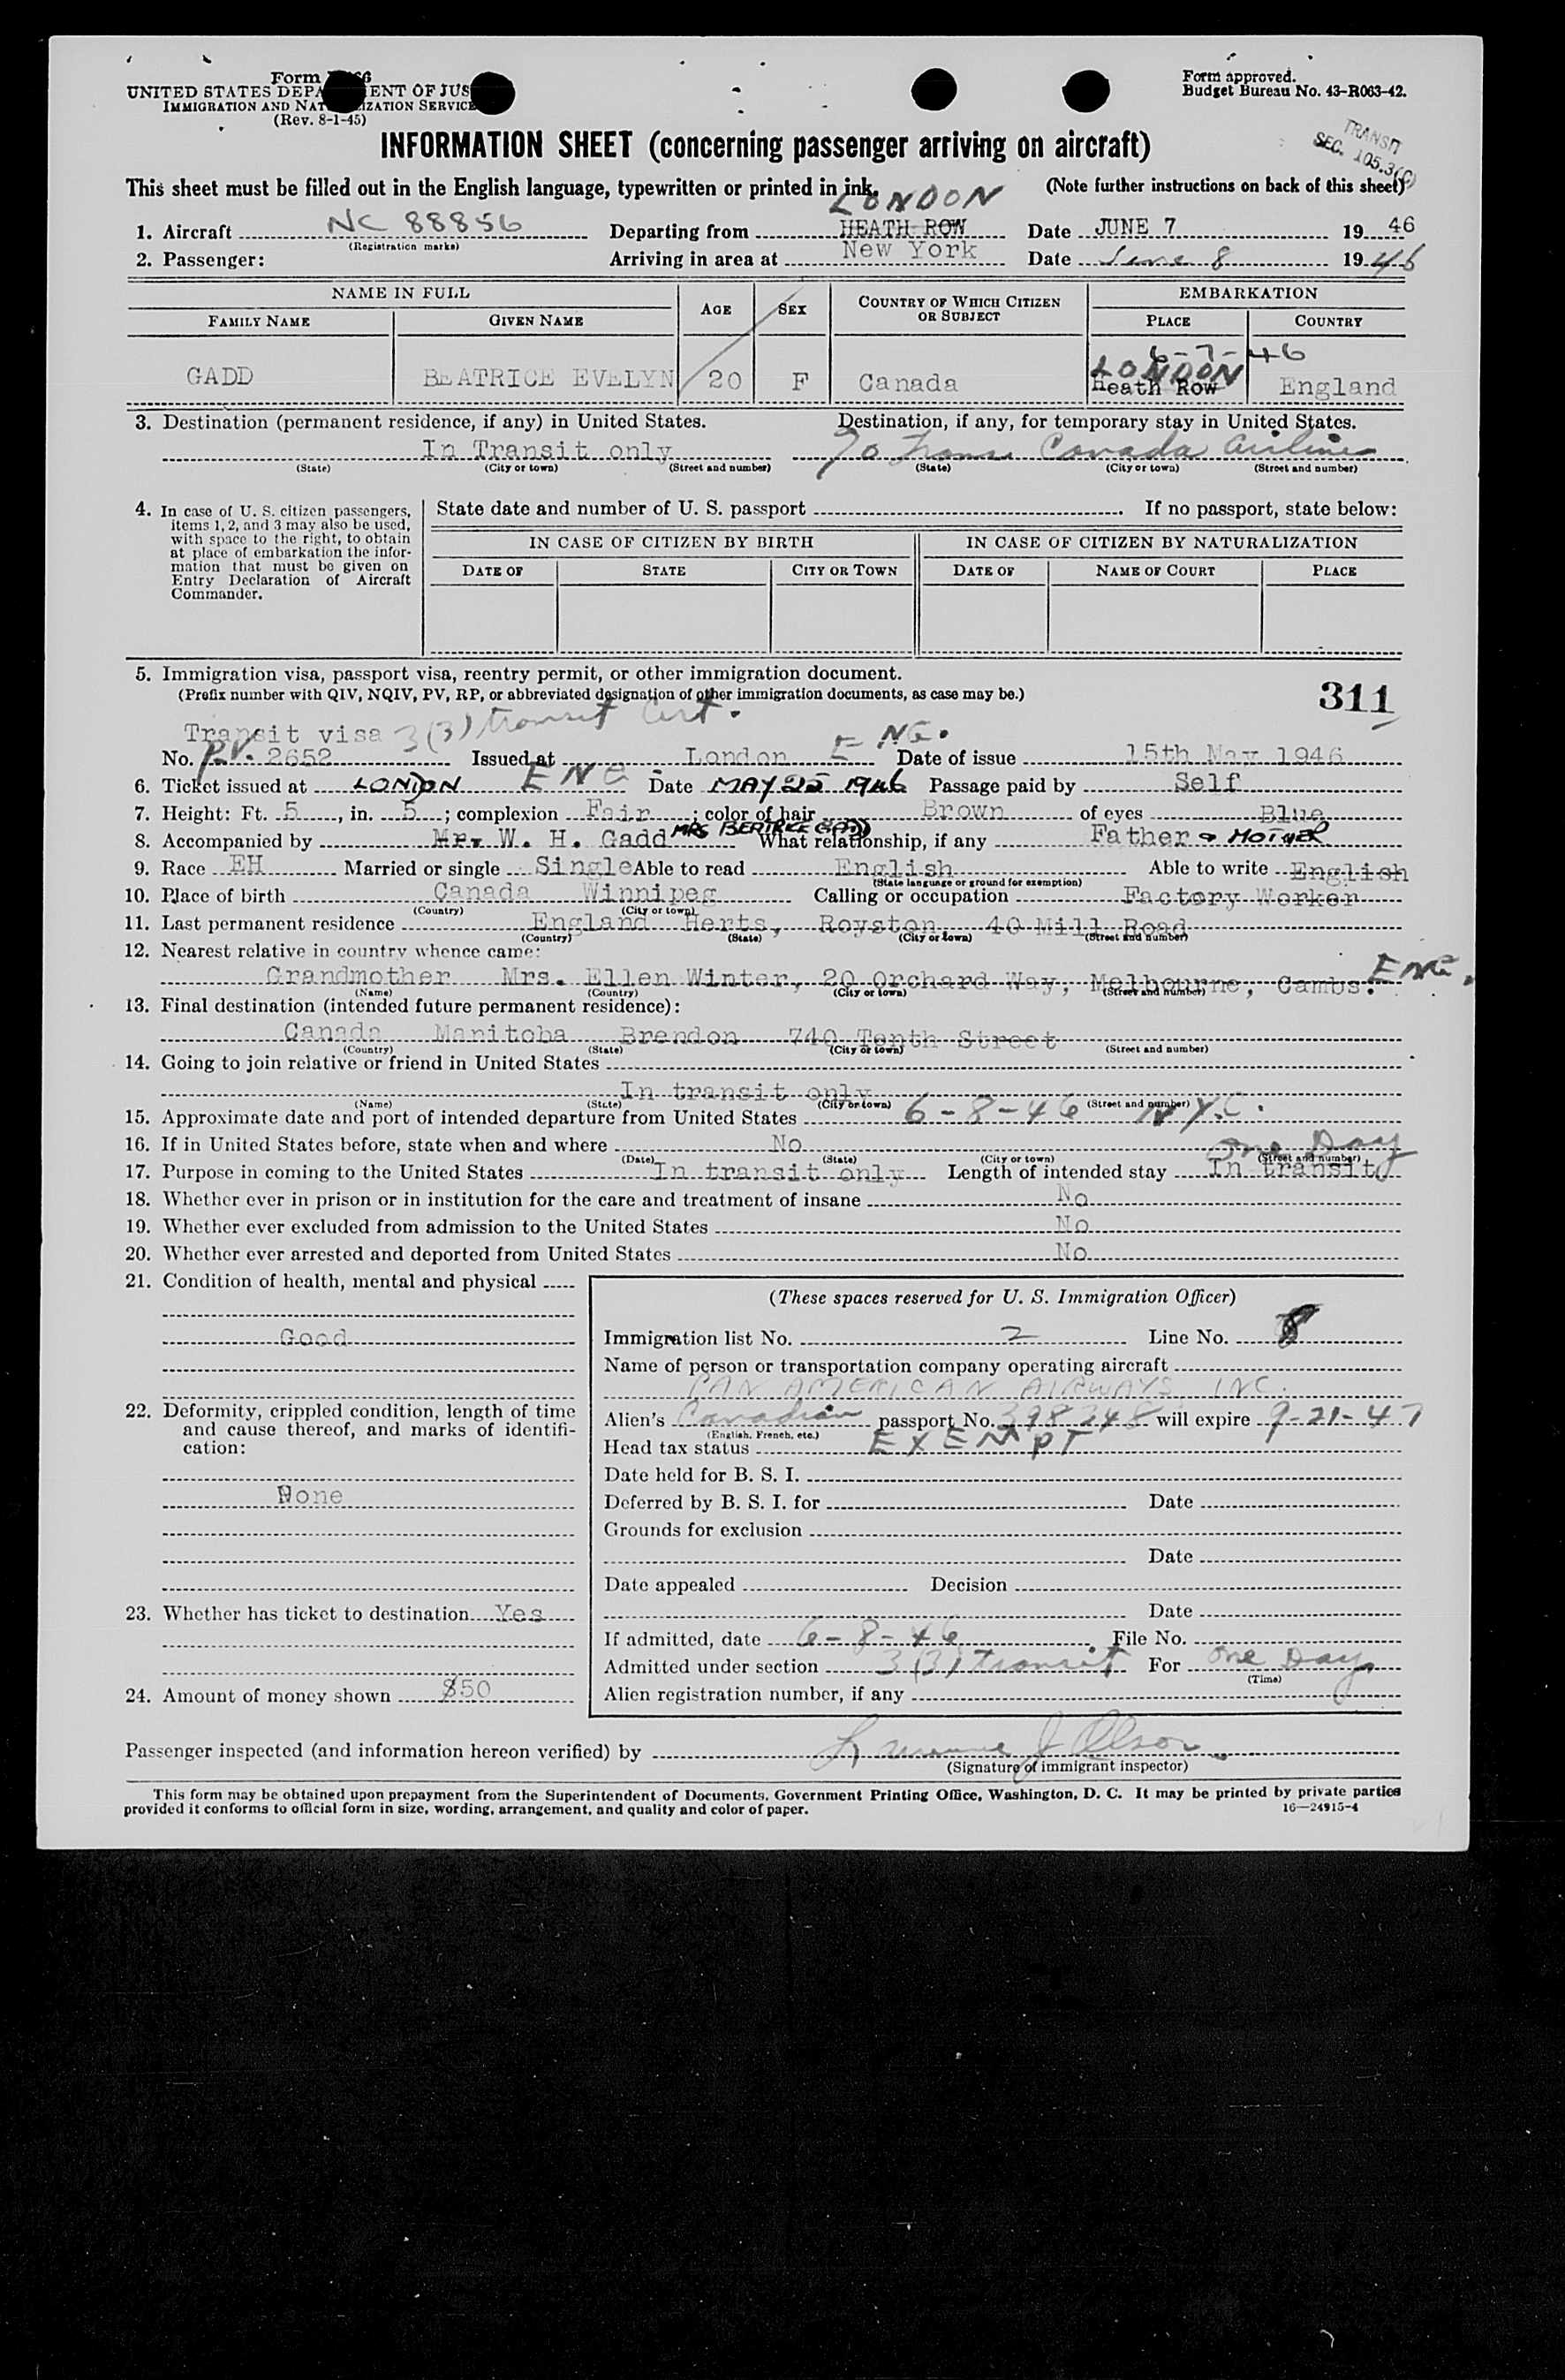 Form
UNITED STATES DEPA ENT OF JUS
IMMIGRATION AND NAT IZATION SERVICE
(Rev. 8-1-45)
Form approved.
Budget Bureau No. 43-R063-42.
INFORMATION SHEET (concerning passenger arriving on aircraft)
TRANSIT
SEC. 105.3(C)
This sheet must be filled out in the English language, typewritten or printed in ink. (Note further instructions on back of this sheet)
LONDON
1. Aircraft NC 88856 Departing from HEATH ROW Date JUNE 7 1946
(Registration marks)
2. Passenger: Arriving in area at New York Date June 8 1946
NAME IN FULL AGE SEX COUNTRY OF WHICH CITIZEN OR SUBJECT EMBARKATION
FAMILY NAME GIVEN NAME PLACE COUNTRY
6-7-46
LONDON
GADD BEATRICE EVELYN 20 F Canada Heath Row England
3. Destination (permanent residence, if any) in United States. Destination, if any, for temporary stay in United States.
In Transit only c/o Trans Canada Airlines
(State) (City or town) (Street and number) (State) (City or town) (Street and number)
4. In case of U. S. citizen passengers, items 1, 2, and 3 may also be used, with space to the right, to obtain at place of embarkation the information that must be given on Entry Declaration of Aircraft Commander.
State date and number of U. S. passport If no passport, state below:
IN CASE OF CITIZEN BY BIRTH IN CASE OF CITIZEN BY NATURALIZATION
DATE OF STATE CITY OR TOWN DATE OF NAME OF COURT PLACE
5. Immigration visa, passport visa, reentry permit, or other immigration document.
(Prefix number with QIV, NQIV, PV, RP, or abbreviated designation of other immigration documents, as case may be.)
311
Transit visa 3(3) transit Cert.
No. P.V. 2652 Issued at London ENG. Date of issue 15th May 1946
6. Ticket issued at LONDON ENG. Date MAY 25 1946 Passage paid by Self
7. Height: Ft. 5, in. 5; complexion Fair; color of hair Brown of eyes Blue
8. Accompanied by Mr. W. H. Gadd MRS BERTRICE GADD What relationship, if any Father & MOTHER
9. Race EH Married or single Single Able to read English Able to write English
(State language or ground for exemption)
10. Place of birth Canada Winnipeg Calling or occupation Factory Worker
(Country) (City or town)
11. Last permanent residence England Herts, Royston 40 Mill Road
(Country) (State) (City or town) (Street and number)
12. Nearest relative in country whence came:
Grandmother Mrs. Ellen Winter, 20 Orchard Way, Melbourne, Cambs. ENG.
(Name) (Country) (City or town) (Street and number)
13. Final destination (intended future permanent residence):
Canada Manitoba Brendon 740 Tenth Street
(Country) (State) (City or town) (Street and number)
14. Going to join relative or friend in United States
In transit only
(Name) (State) (City or town) (Street and number)
15. Approximate date and port of intended departure from United States 6-8-46 N.Y.C.
16. If in United States before, state when and where No
(Date) (State) (City or town) (Street and number)
one Day
17. Purpose in coming to the United States In transit only Length of intended stay In transit
18. Whether ever in prison or in institution for the care and treatment of insane No
19. Whether ever excluded from admission to the United States No
20. Whether ever arrested and deported from United States No
21. Condition of health, mental and physical
Good
22. Deformity, crippled condition, length of time and cause thereof, and marks of identification:
None
23. Whether has ticket to destination Yes
24. Amount of money shown $50
(These spaces reserved for U. S. Immigration Officer)
Immigration list No. 2 Line No. 8
Name of person or transportation company operating aircraft
PAN AMERICAN AIRWAYS INC.
Alien's Canadian passport No. 398248 will expire 9-21-47
(English, French, etc.)
Head tax status EXEMPT
Date held for B. S. I.
Deferred by B. S. I. for Date
Grounds for exclusion
Date
Date appealed Decision
Date
If admitted, date 6-8-46 File No.
Admitted under section 3(3) transit For one Day
(Time)
Alien registration number, if any
Passenger inspected (and information hereon verified) by J Olson
(Signature of immigrant inspector)
This form may be obtained upon prepayment from the Superintendent of Documents, Government Printing Office, Washington, D. C. It may be printed by private parties
provided it conforms to official form in size, wording, arrangement, and quality and color of paper. 16—24915-4